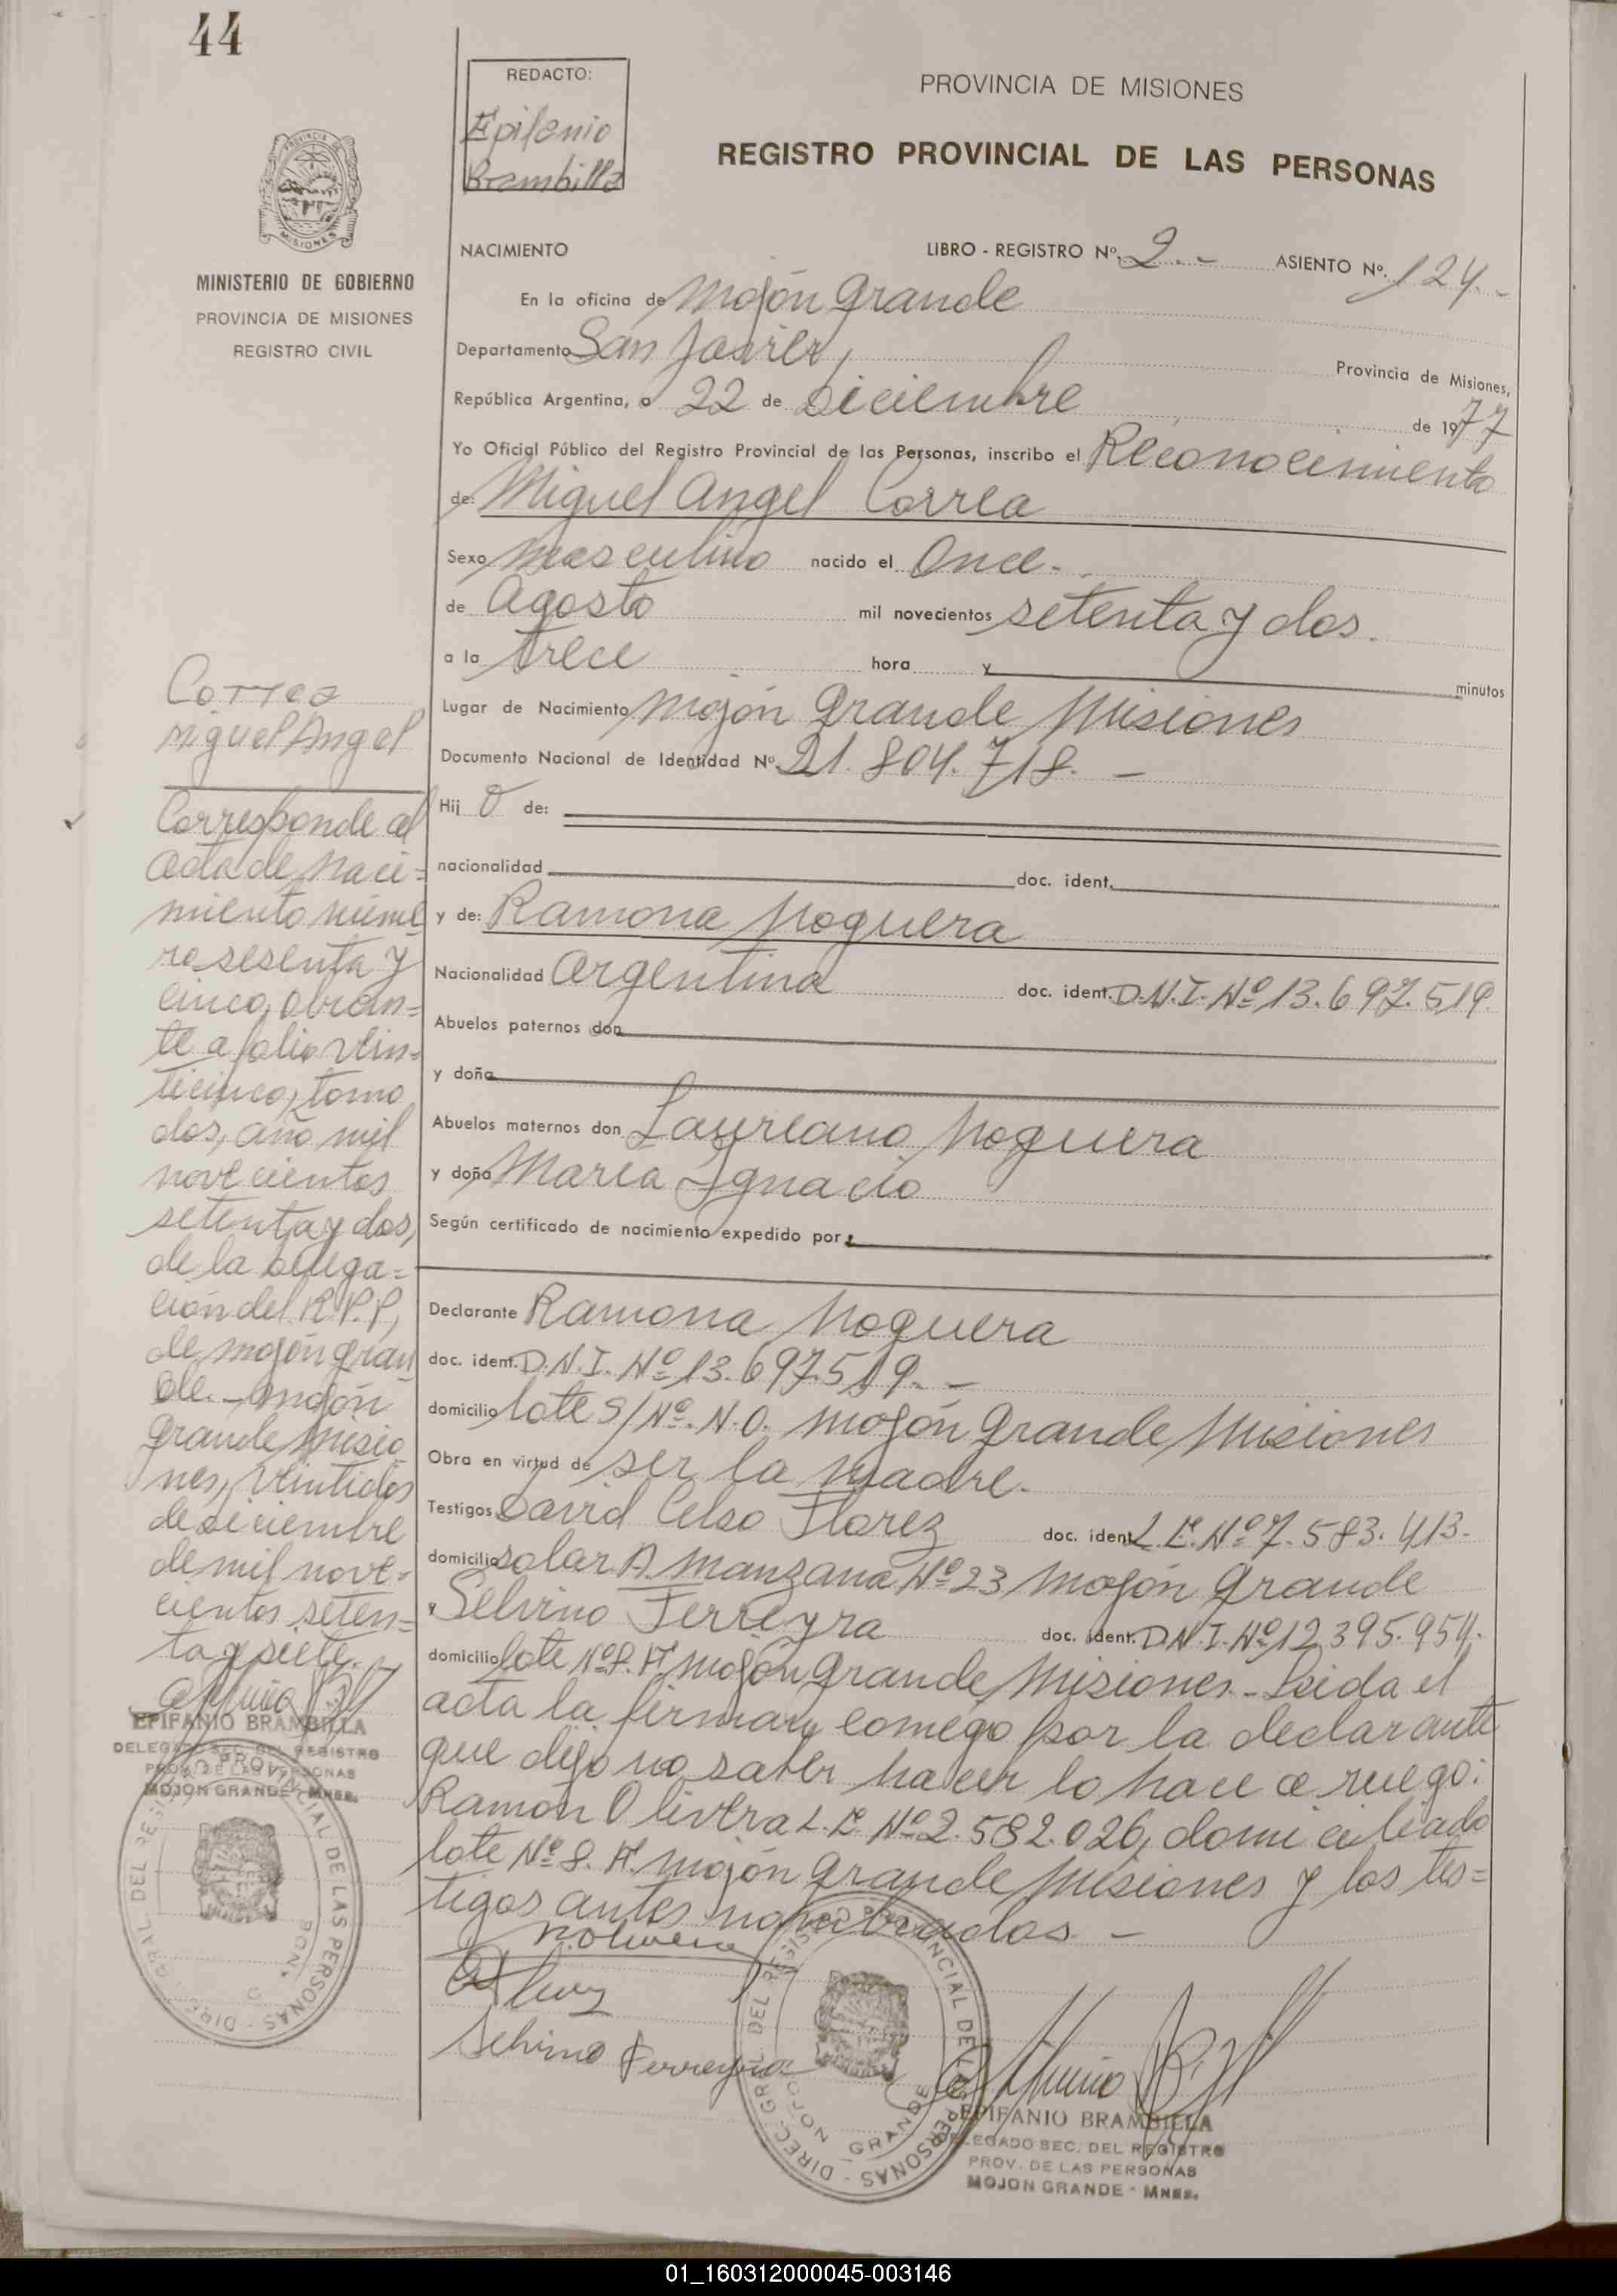 44
REDACTO:
Epifanio
Brambilla
PROVINCIA DE MISIONES
REGISTRO PROVINCIAL DE LAS PERSONAS
MINISTERIO DE GOBIERNO
PROVINCIA DE MISIONES
REGISTRO CIVIL
NACIMIENTO LIBRO - REGISTRO Nº 2.- ASIENTO Nº. 124.-
En la oficina de Mojón Grande
Departamento San Javier, Provincia de Misiones,
República Argentina, a 22 de Diciembre de 1977
Yo Oficial Público del Registro Provincial de las Personas, inscribo el Reconocimiento
de: Miguel Angel Correa
Sexo Masculino nacido el Once.
de Agosto mil novecientos setenta y dos.
a la trece hora y minutos
Lugar de Nacimiento Mojón Grande Misiones
Documento Nacional de Identidad Nº 21.804.718.-
Hij o de:
nacionalidad doc. ident.
y de: Ramona Noguera
Nacionalidad Argentina doc. ident. D.N.I. Nº 13.697.519.
Abuelos paternos don
y doña
Abuelos maternos don Laureano Noguera
y doña María Ignacio
Según certificado de nacimiento expedido por:
Declarante Ramona Noguera
doc. ident. D.N.I. Nº 13.697.519.-
domicilio lote S/Nº. N.O. Mojón Grande Misiones
Obra en virtud de ser la madre.
Testigos David Celso Florez doc. ident. L.E. Nº 7.583.413.
domicilio solar A. Manzana Nº 23 Mojón Grande
y Selvino Ferreyra doc. ident. D.N.I. Nº 12.395.954.
domicilio lote Nº 8. A. Mojón Grande Misiones.- Leida el
acta la firman comego por la declarante
que dijo no saber hacer lo hace a ruego:
Ramón Olivera L.E. Nº 2.582.026, domiciliado
lote Nº 8. A. Mojón Grande Misiones y los tes=
tigos antes nombrados.-
Correa
Miguel Angel
Corresponde al
acta de naci=
miento núme
ro sesenta y
cinco, obran=
te a folio vein=
ticinco, tomo
dos, año mil
novecientos
setenta y dos,
de la delega=
ción del R.P.P,
de Mojón Gran
de.- Mojón
Grande Misio
nes, veintidos
de diciembre
de mil nove=
cientos seten=
ta y siete.
EPIFANIO BRAMBILLA
DELEGADO SEC. DEL REGISTRO
PROV. DE LAS PERSONAS
MOJON GRANDE - MNES.
DIREC. GRAL. DEL REGISTRO PROVINCIAL DE LAS PERSONAS
R. Olivera
Selvino Ferreyra
DIREC. GRAL. DEL REGISTRO PROVINCIAL DE LAS PERSONAS
MOJON GRANDE
EPIFANIO BRAMBILLA
DELEGADO SEC. DEL REGISTRO
PROV. DE LAS PERSONAS
MOJON GRANDE - MNES.
01_160312000045-003146